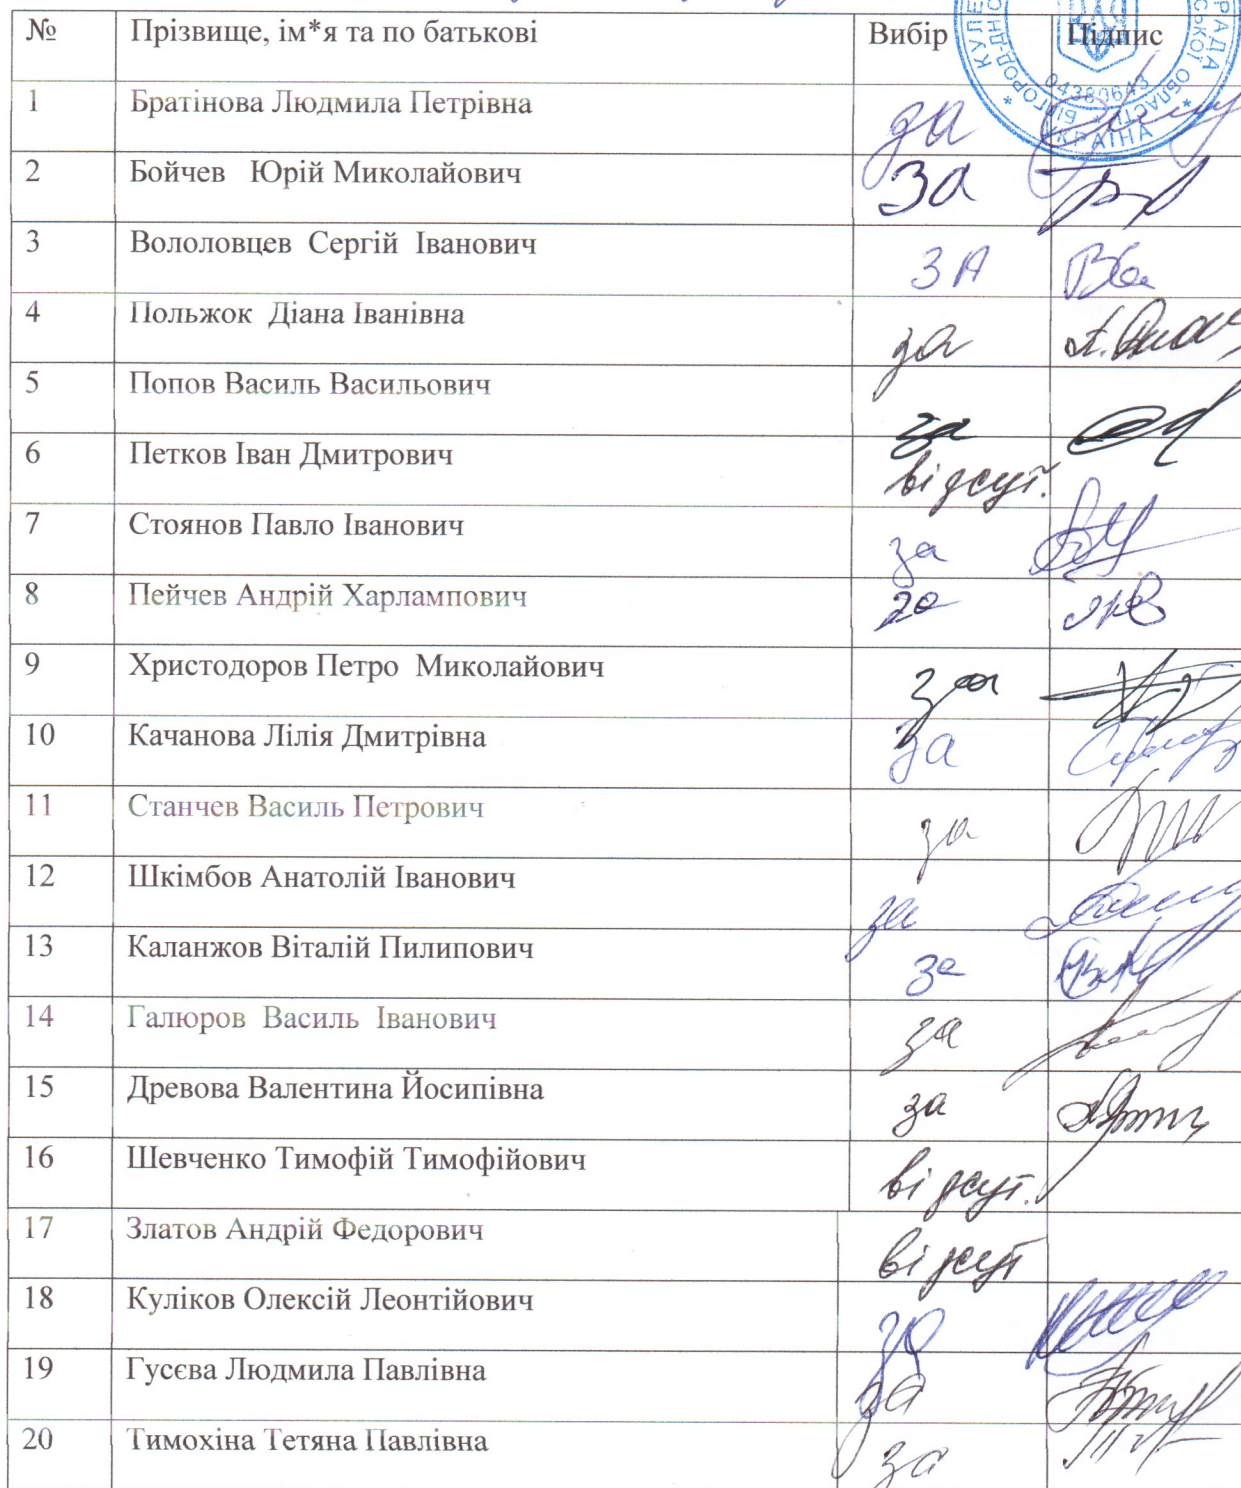 № Прізвище, ім*я та по батькові Вибір Підпис
04380643
УКРАЇНА
1 Братінова Людмила Петрівна за
2 Бойчев Юрій Миколайович за
3 Вололовцев Сергій Іванович ЗА
4 Польжок Діана Іванівна за
5 Попов Василь Васильович за
6 Петков Іван Дмитрович відсут.
7 Стоянов Павло Іванович за
8 Пейчев Андрій Харлампович за
9 Христодоров Петро Миколайович за
10 Качанова Лілія Дмитрівна за
11 Станчев Василь Петрович за
12 Шкімбов Анатолій Іванович за
13 Каланжов Віталій Пилипович за
14 Галюров Василь Іванович за
15 Древова Валентина Йосипівна за
16 Шевченко Тимофій Тимофійович відсут.
17 Златов Андрій Федорович відсут
18 Куліков Олексій Леонтійович за
19 Гусєва Людмила Павлівна за
20 Тимохіна Тетяна Павлівна за